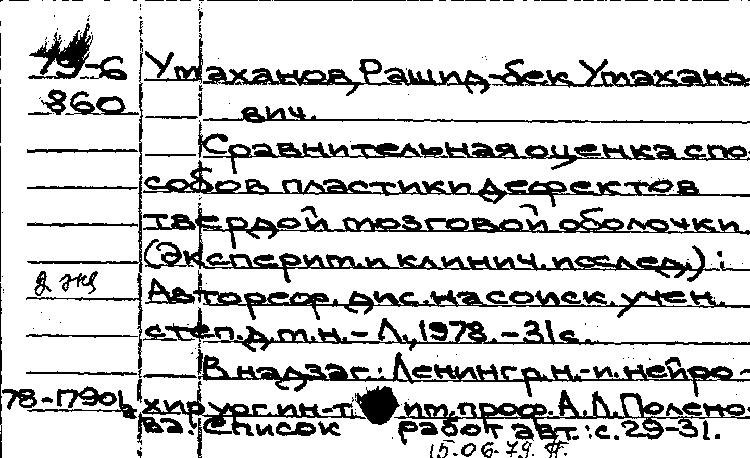 79-6 Умаханов, Рашид-бек Умахано-
860 вич.
Сравнительная оценка спо-
собов пластики дефектов
твердой мозговой оболочки.
(Эксперим. и клинич. исслед.) :
2 экз Автореф. дис. на соиск. учен.
степ. д. м. н. - Л., 1978. - 31 с.
В надзаг.: Ленингр. н.-и. нейро-
хирург. ин-т им. проф. А. Л. Полено-
ва. Список работ авт.: с. 29-31.
15.06.79.